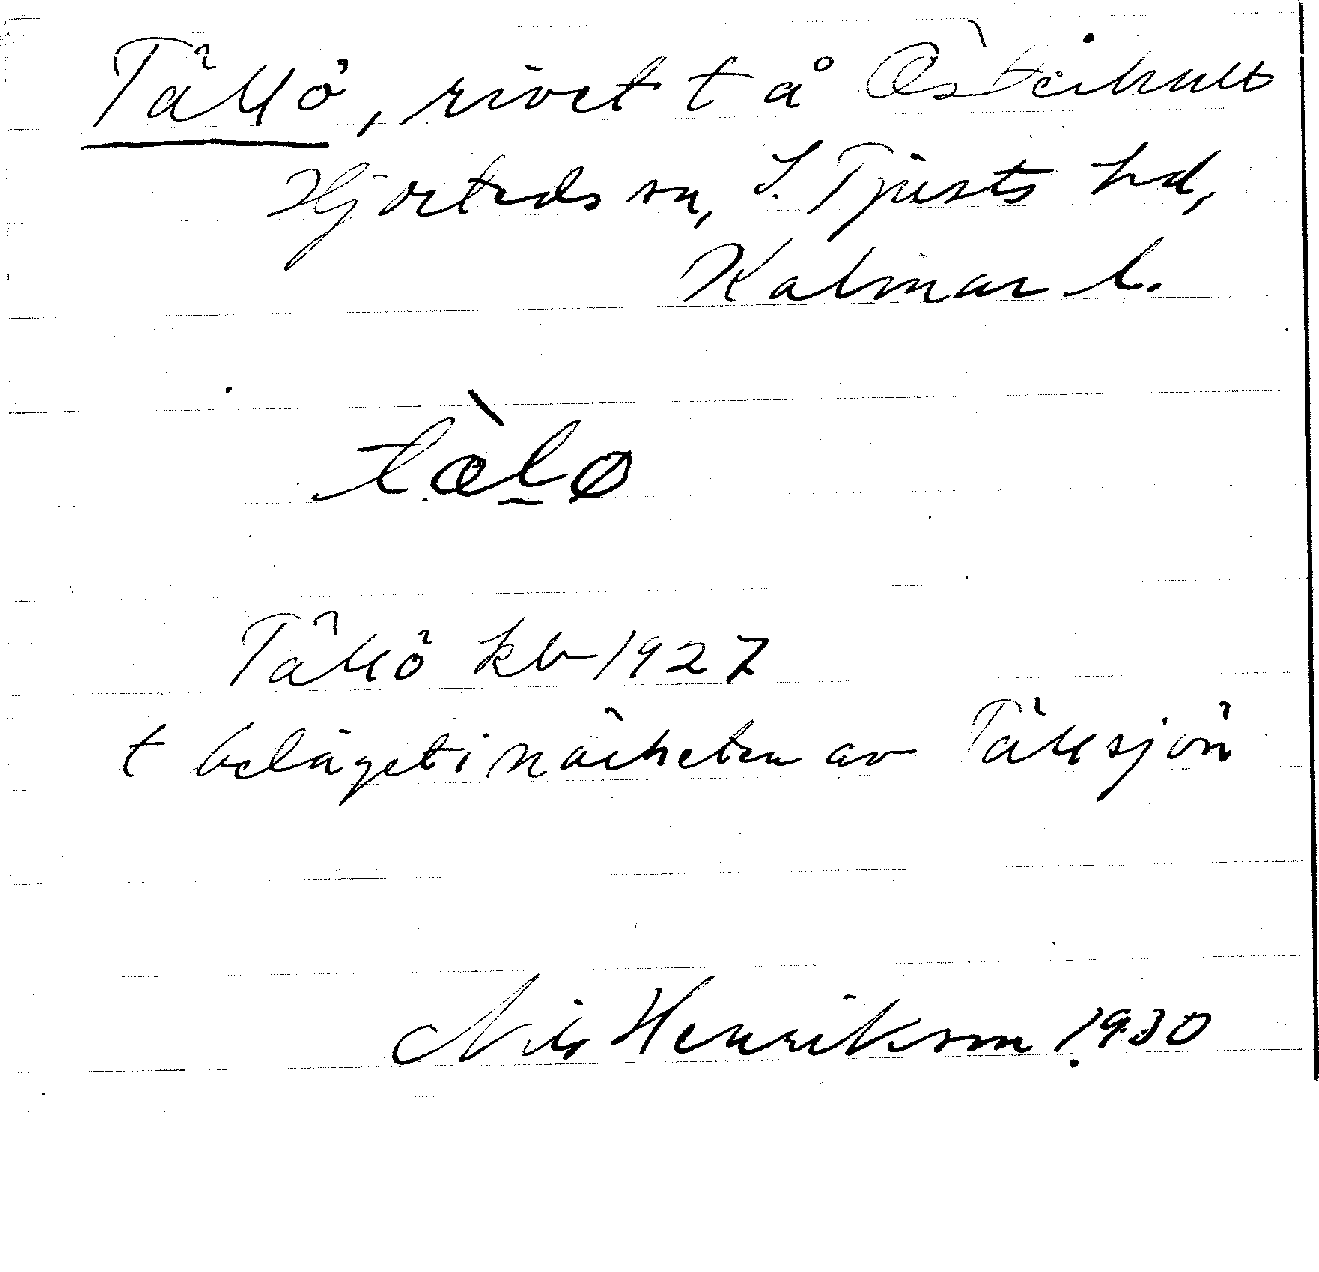 Tällö, rivet t å Österhult
Hjorteds sn, S. Tjusts hd,
Kalmar l.
tæ̀lø
Tällö kb 1927
t beläget i närheten av Tällsjön
Nils Henrikson 1930